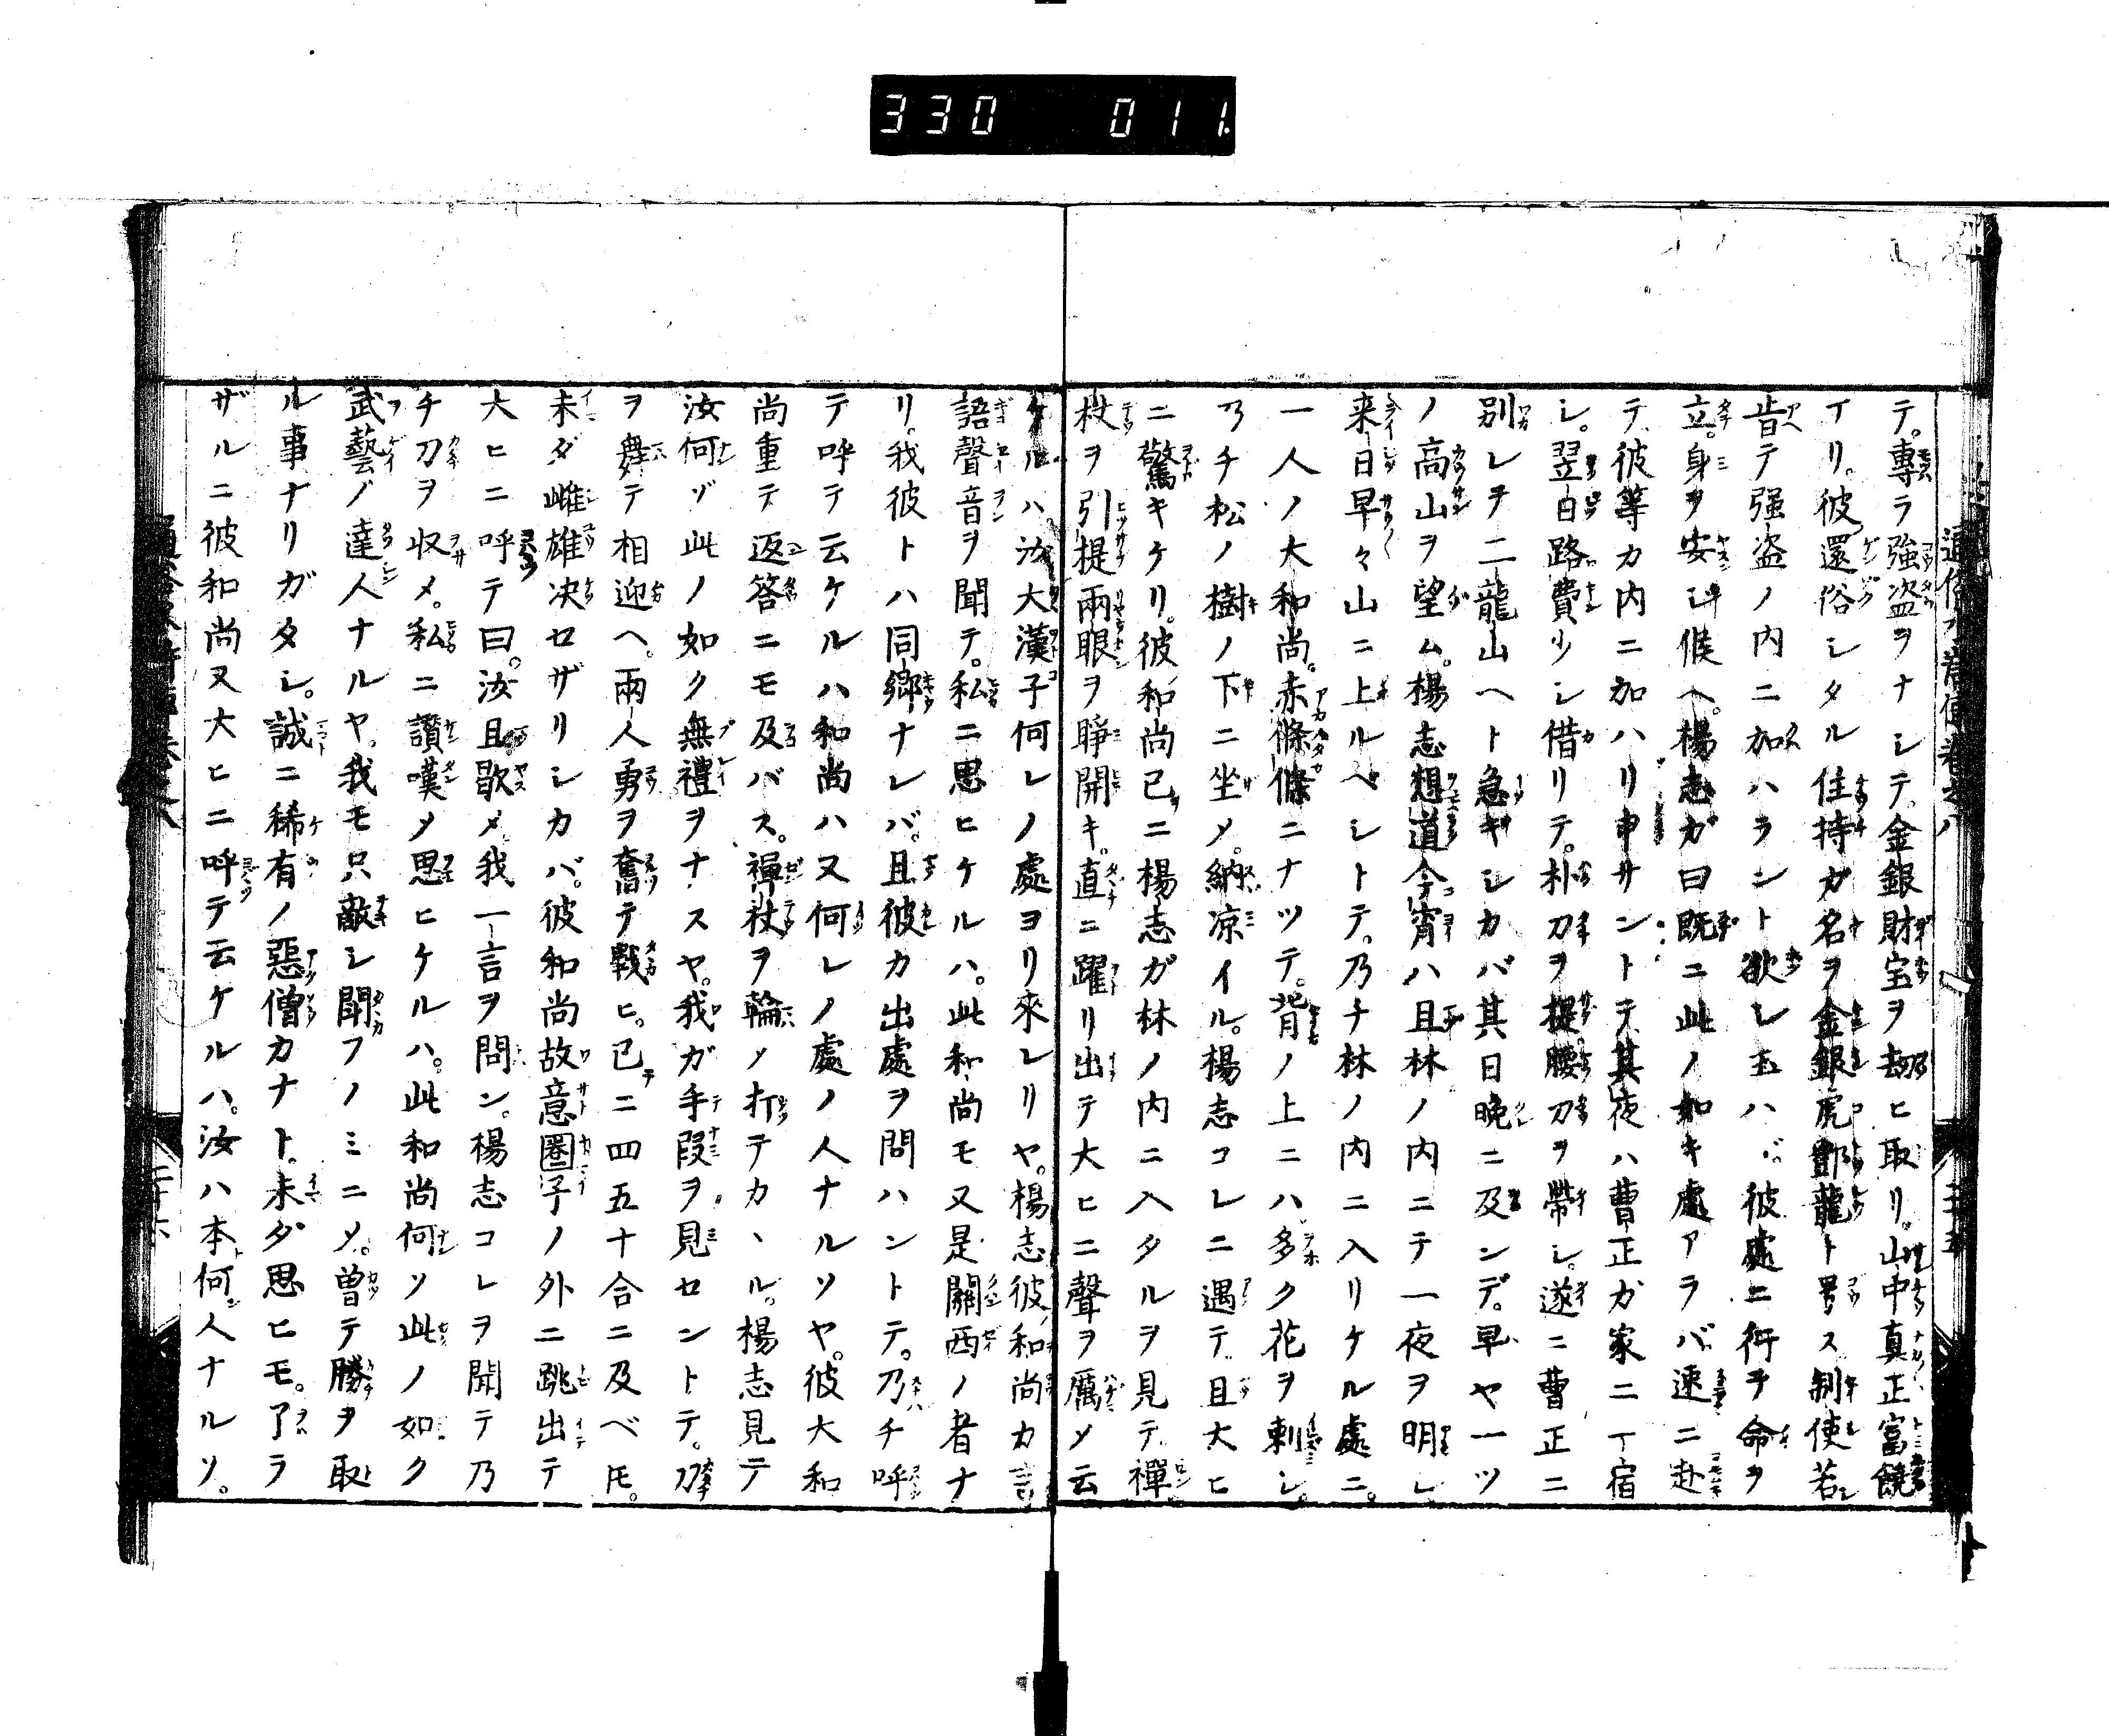 330 011
テ。專ラ強盗ヲナシテ金銀財宝ヲ劫ヒ取リ。山中真正富饒
イリ。彼還俗シタル住持ガ名ヲ金銀虎鄧龍ト号ス制使若
肯テ强盗ノ内ニ加ハラント欲シ玉ハヾ彼處ニ行テ命ヲ
立。身ヲ安シ候ヘ。楊志ガ曰既ニ此ノ如キ處アラバ速ニ赴
テ彼等カ内ニ加ハリ申サントテ其夜ハ曹正カ家ニ一宿
シ。翌日路費少シ借リテ。朴刀ヲ提腰刀ヲ帶シ。遂ニ曹正ニ
別レテ二龍山ヘト急ギシカバ其日晩ニ及ンデ。早ヤ一ツ
ノ高山ヲ望ム。楊志想道今宵ハ且林ノ内ニテ一夜ヲ明シ
来日早々山ニ上ルベシトテ。乃チ林ノ内ニ入リケル處ニ。
一人ノ大和尚。赤條條ニナツテ。背ノ上ニハ多ク花ヲ刺シ。
乃チ松ノ樹ノ下ニ坐メ。納凉イル。楊志コレニ遇テ且大ヒ
ニ驚キケリ。彼和尚已ニ楊志ガ林ノ内ニ入タルヲ見テ禪
杖ヲ引提兩眼ヲ睜開キ。直ニ躍リ出テ大ヒニ聲ヲ厲メ云
ケルハ。汝大漢子何レノ處ヨリ來レリヤ。楊志彼和尚カ言
語聲音ヲ聞テ。私ニ思ヒケルハ。此和尚モ又是關西ノ者ナ
リ。我彼トハ同郷ナレバ。且彼カ出處ヲ問ハントテ。乃チ呼
テ呼テ云ケルハ和尚ハ又何レノ處ノ人ナルソヤ。彼大和
尚重テ返答ニモ及バス。禪杖ヲ輪メ打テカヽル。楊志見テ
汝何ゾ此ノ如ク無禮ヲナスヤ。我ガ手段ヲ見セントテ。刀
ヲ舞テ相迎ヘ。兩人勇ヲ奮テ戰ヒ。已ニ四五十合ニ及ベ𪜈。
未ダ雌雄决セザリシカバ。彼和尚故意圏子ノ外ニ跳出テ
大ヒニ呼テ曰。汝且歇メ我一言ヲ問ン。楊志コレヲ聞テ乃
チ刀ヲ収メ。私ニ讃嘆メ思ヒケルハ。此和尚何ソ此ノ如ク
武藝ノ達人ナルヤ。我モ只敵シ鬪フノミニメ。曽テ勝ヲ取
ル事ナリガタシ。誠ニ稀有ノ惡僧カナト。未ダ思ヒモ。了ラ
ザルニ彼和尚又大ヒニ呼テ云ケルハ。汝ハ本何人ナルソ。